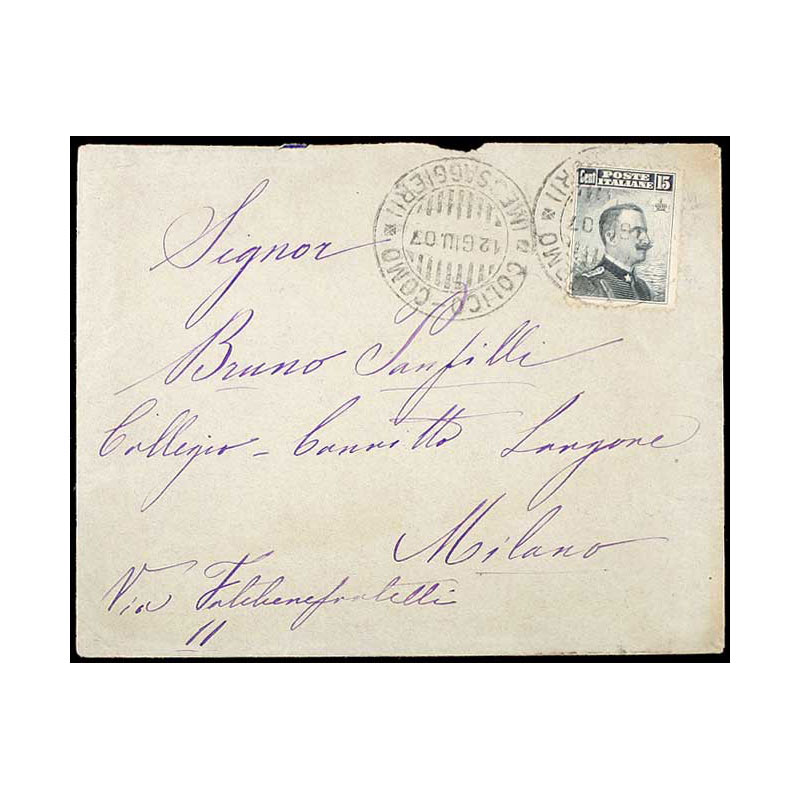 COLICO-COMO * (MESSAGGIERI) *
12 GIU. 07
Cent POSTE ITALIANE 15
Signor
Bruno Sanfilli
Collegio - Convitto Longone
Milano
Via Fatebenefratelli
11